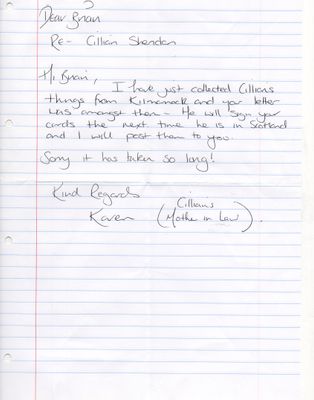 Dear Brian
RE - Cillian Sheridan
Hi Brian,
I have just collected Cillians
things from Kilmarnock and your letter
was amongst them - He will sign your
cards the next time he is in Scotland
and I will post them to you.
Sorry it has taken so long!
Kind Regards
Karen (Cillians
Mother in Law).